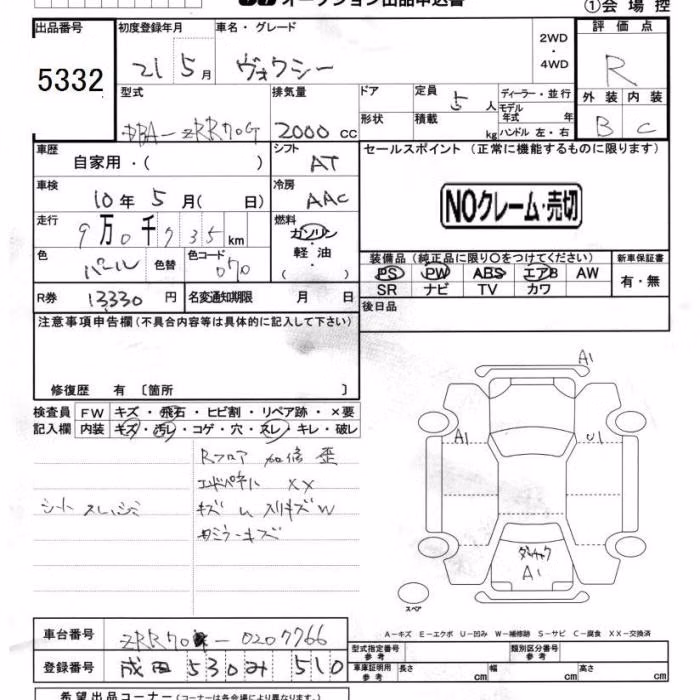 オークション出品申込書
①会場控
出品番号 5332
初度登録年月 21 5月
車名・グレード ヴォクシー
2WD・4WD
評価点 R
外装 B 内装 C
型式 DBA-ZRR70G
排気量 2000 cc
ドア
形状
定員 5人
積載 kg
ディーラー・並行
モデル年式 年
ハンドル 左・右
車歴 自家用・( )
シフト AT
セールスポイント (正常に機能するものに限ります)
車検 10年5月( 日)
冷房 AAC
NOクレーム・売切
走行 9万0千7 3 5 km
燃料 ガソリン・軽油・( )
色 パール 色替 色コード 070
装備品 (純正品に限り○をつけてください)
新車保証書
PS PW ABS エアB AW
SR ナビ TV カワ
有・無
R券 13330円 名変通知期限 月 日
後日品
注意事項申告欄 (不具合内容等は具体的に記入して下さい)
修復歴 有 〔箇所 〕
検査員記入欄
FW キズ・飛石・ヒビ割・リペア跡・×要
内装 キズ・汚レ・コゲ・穴・スレ・キレ・破レ
Rフロア 加修 歪
エンドパネル XX
シート スレ
A1
A1
U1
A1
スペア
A-キズ E-エクボ U-凹み W-補修跡 S-サビ C-腐食 XX-交換済
車台番号 ZRR70 - 0207766
登録番号 成田 530 み 510
型式指定番号 参考
類別区分番号 参考
車庫証明用 参考 長さ cm 幅 cm 高さ cm
希望出品コーナー (コーナーは各会場により異なります。)